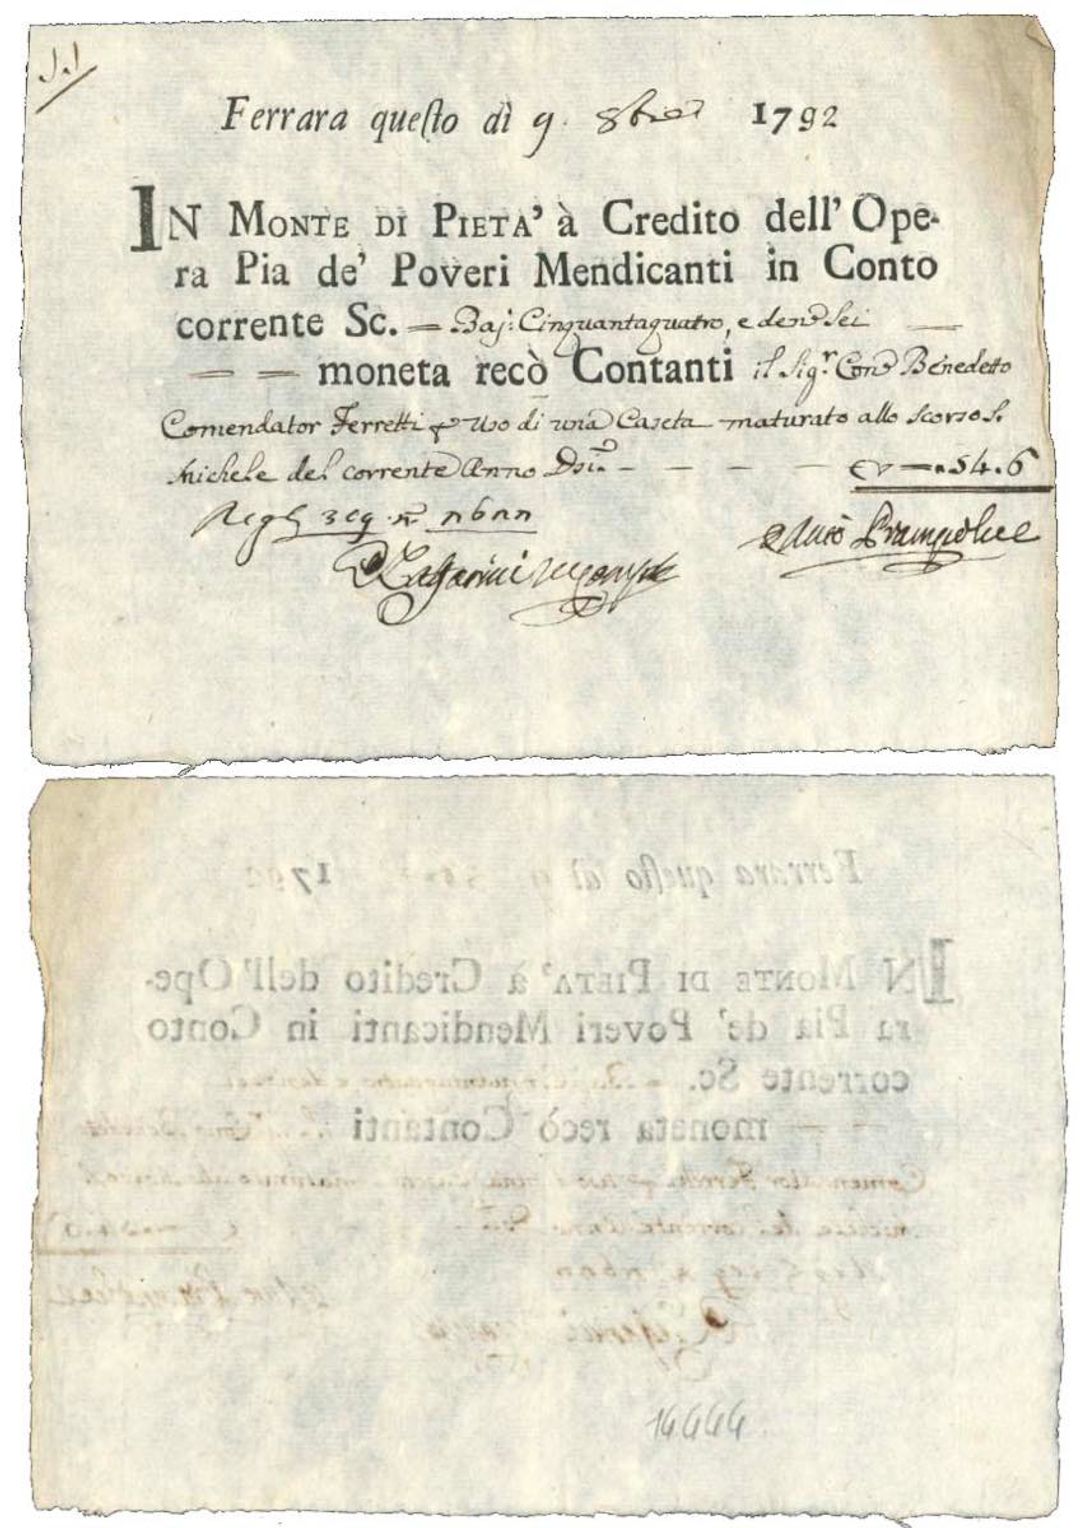 Ferrara queſto dì 9. 8bre 1792
IN MONTE DI PIETA' à Credito dell' Ope-
ra Pia de' Poveri Mendicanti in Conto
corrente Sc. = Baj: Cinquantaquatro, e den Sei —
— = moneta recò Contanti il Sig.r Con Benedetto
Comendator Ferretti uso di una Caseta maturato allo scorso S.
Michele del corrente Anno — — — — 54.6
14444